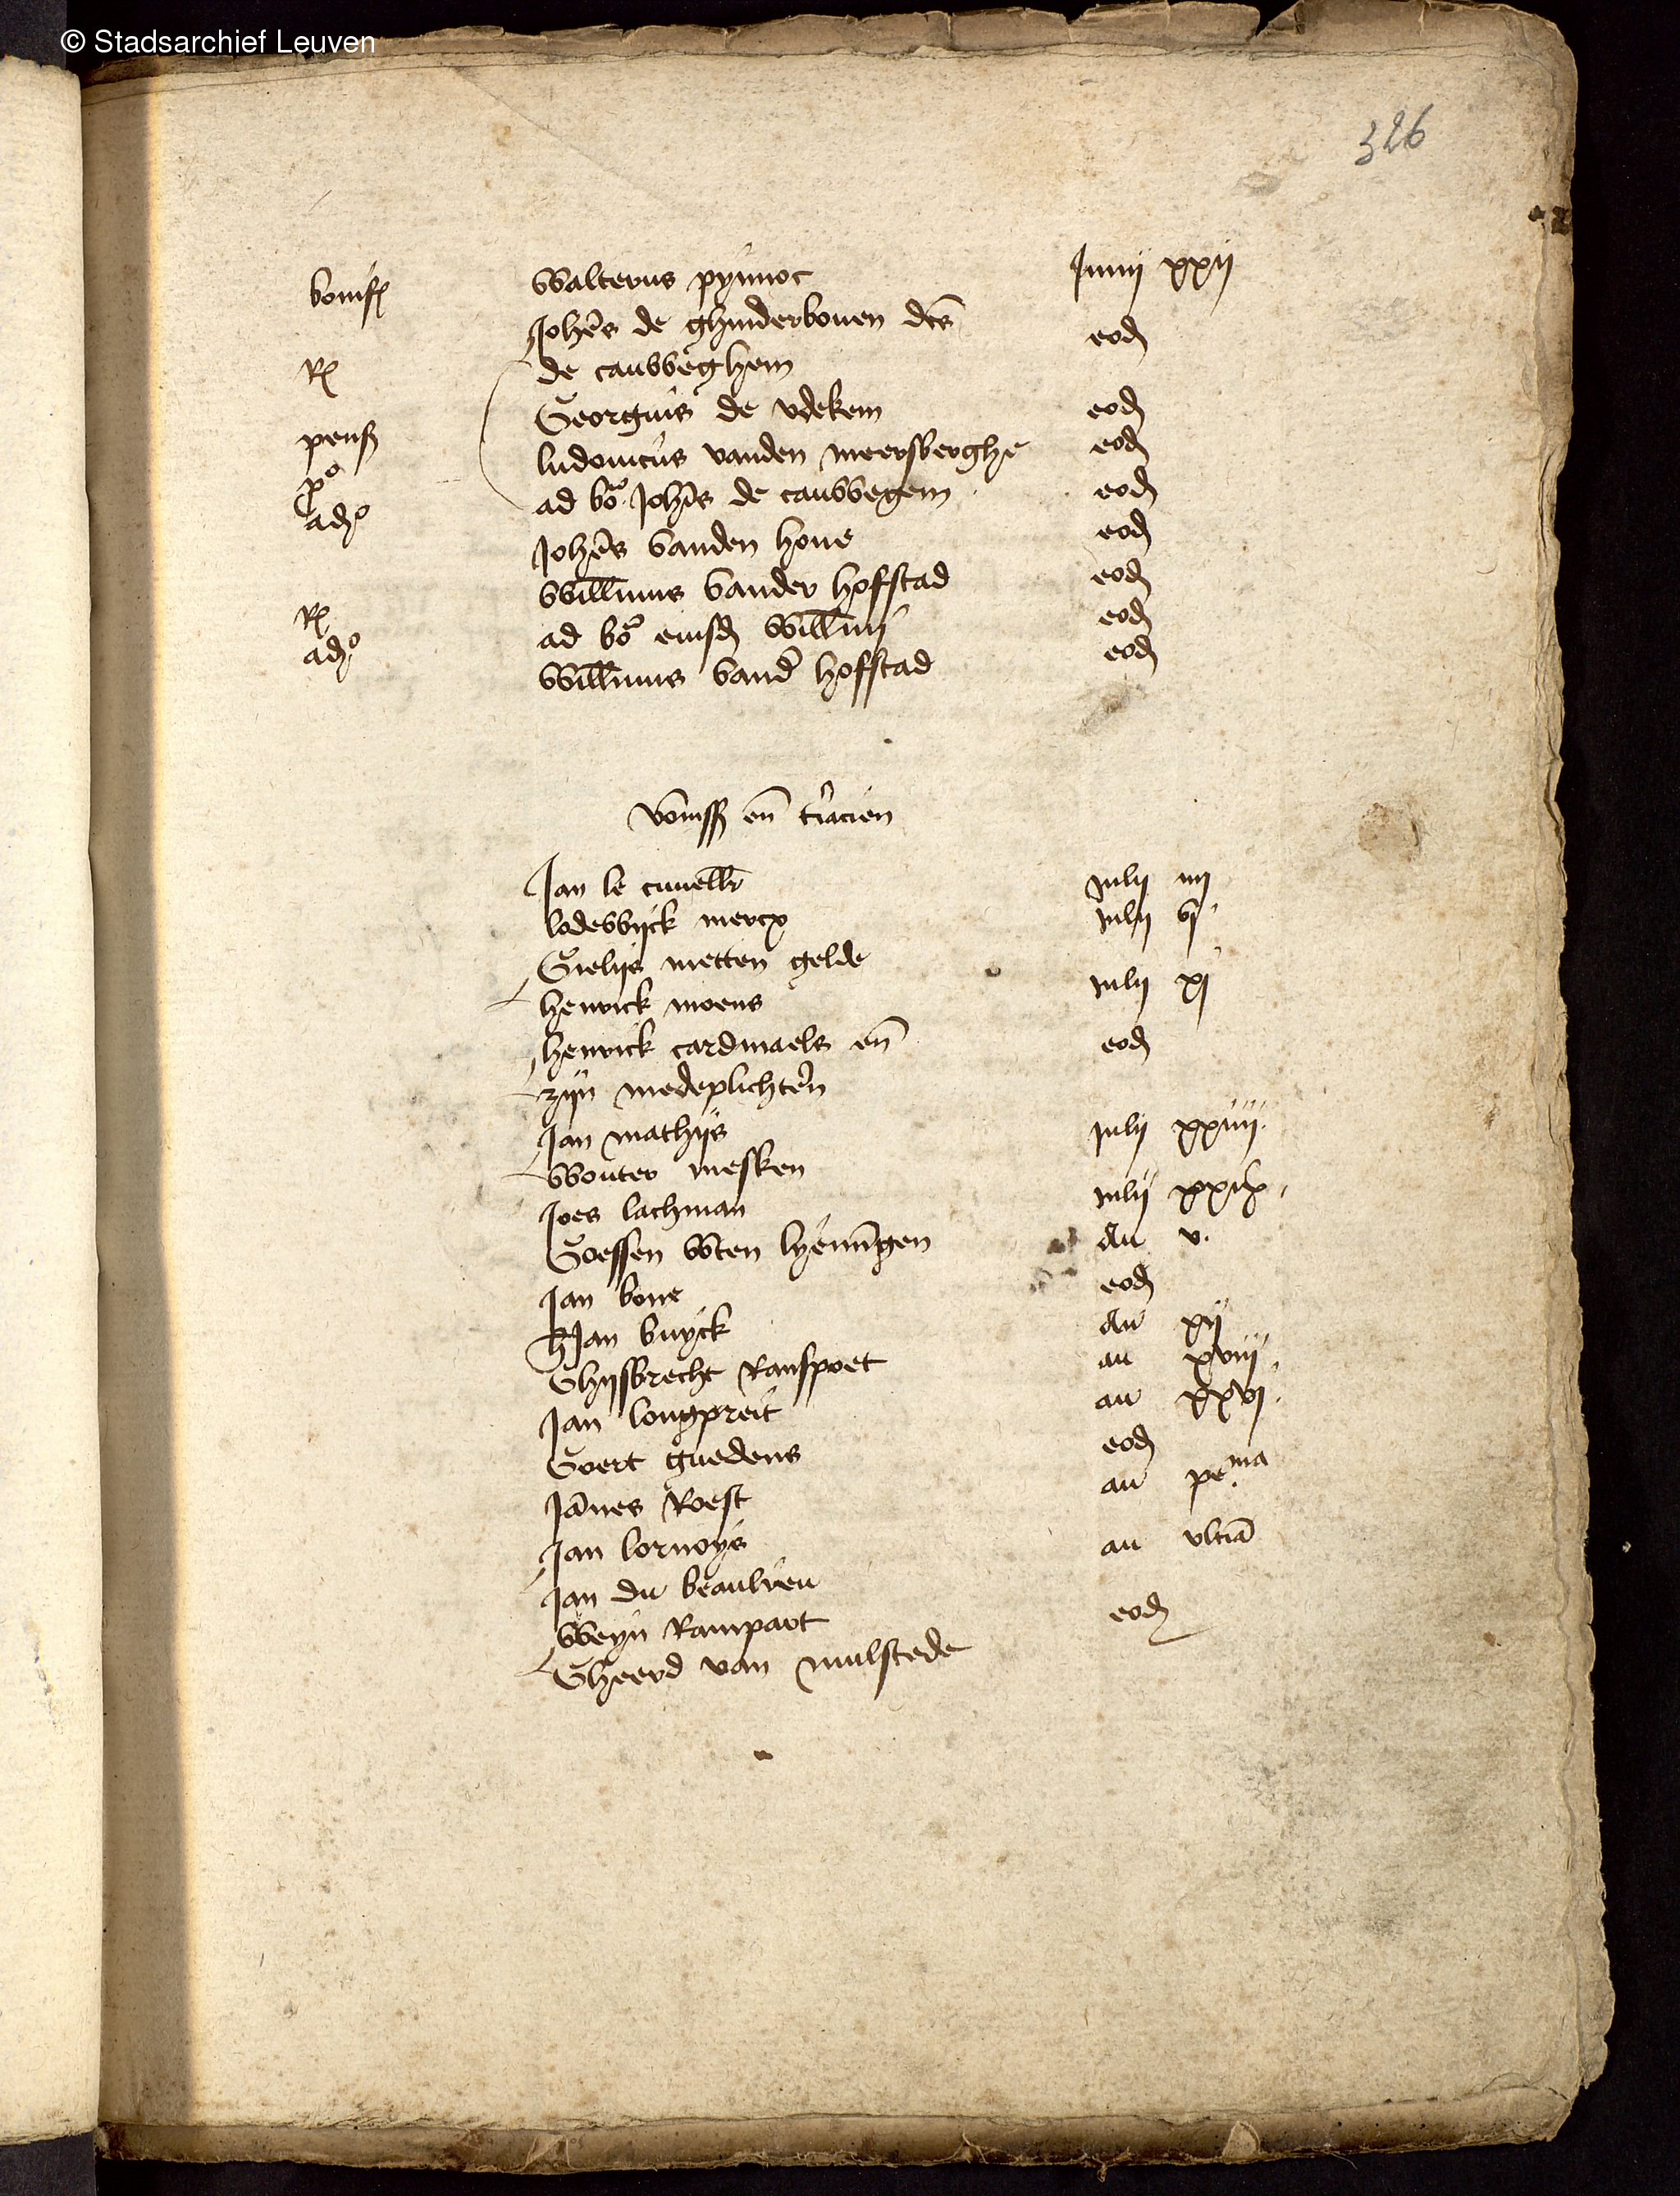 © Stadsarchief Leuven
326
vonnisse Walterus pynnoc Junij xxij
Johes de ghinderboven dcs eod
R de cauweghem
Georgius de vdekem eod
penss ludovicus vanden meersberghe eod
po ad vo Johis de cauwegem eod
ado Johes vanden hove eod
Willmus vander hofstad eod
R ad vo eiusd Willmi eod
ado Willmus vand hofstad eod
vonnisse en tracien
Jan le cuvellr julij iiij
lodewijck mercx julij vj
Gielijs metten gelde
henrick moens julij xj
henrick cardinaels en eod
zijn medeplichten
Jan mathijs julij xxiiij
Wouter mesken
Joes lachman julij xxix
Goessen wten lyemingen au v
Jan bone eod
h Jan buyck au xij
Ghijsbrecht Ranspoet au xviij
Jan longpreit au xxvj
Goert guedens eod
Jannes Roest au pema
Jan lornoys
Jan du beaulieu au vltia
Weyn Rampart eod
Gheerd van mulstede